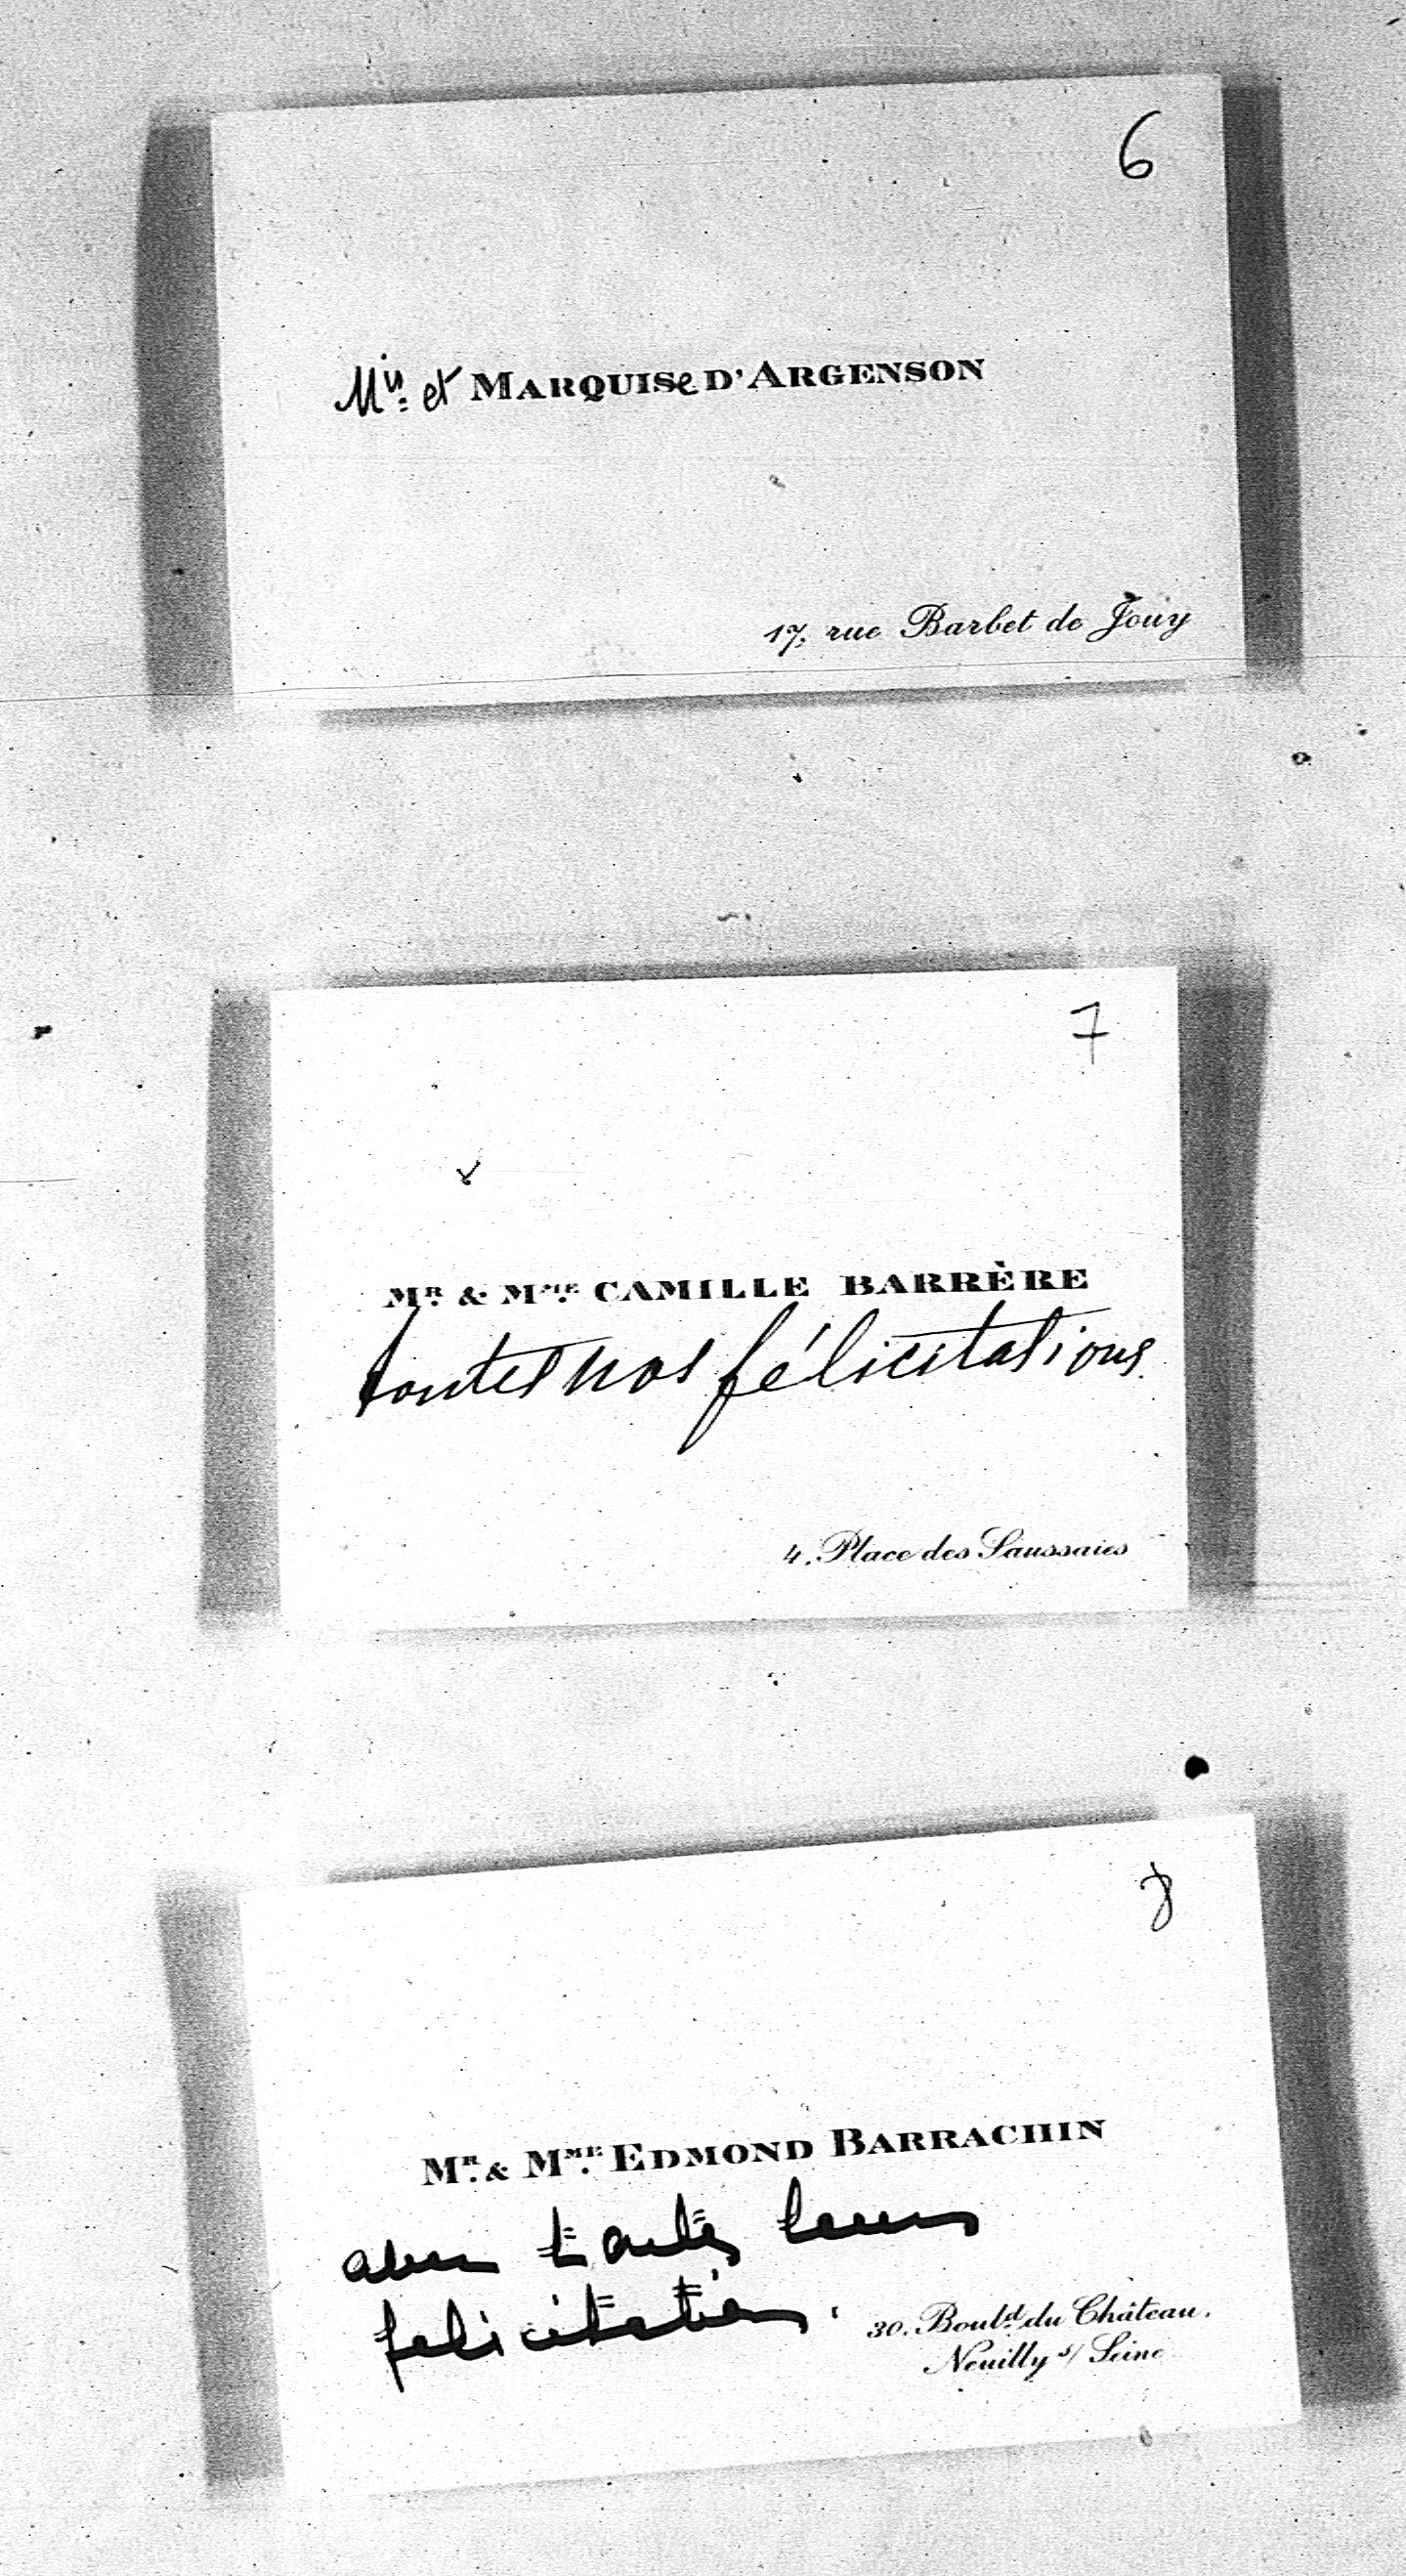 6
Mis et MARQUISe D'ARGENSON
17, rue Barbet de Jouy
7
MR. & MME. CAMILLE BARRÈRE
toutes nos félicitations.
4. Place des Saussaies
8
MR. & MME. EDMOND BARRACHIN
avec toutes leurs
felicitations.
30. Bould. du Château.
Neuilly s/ Seine